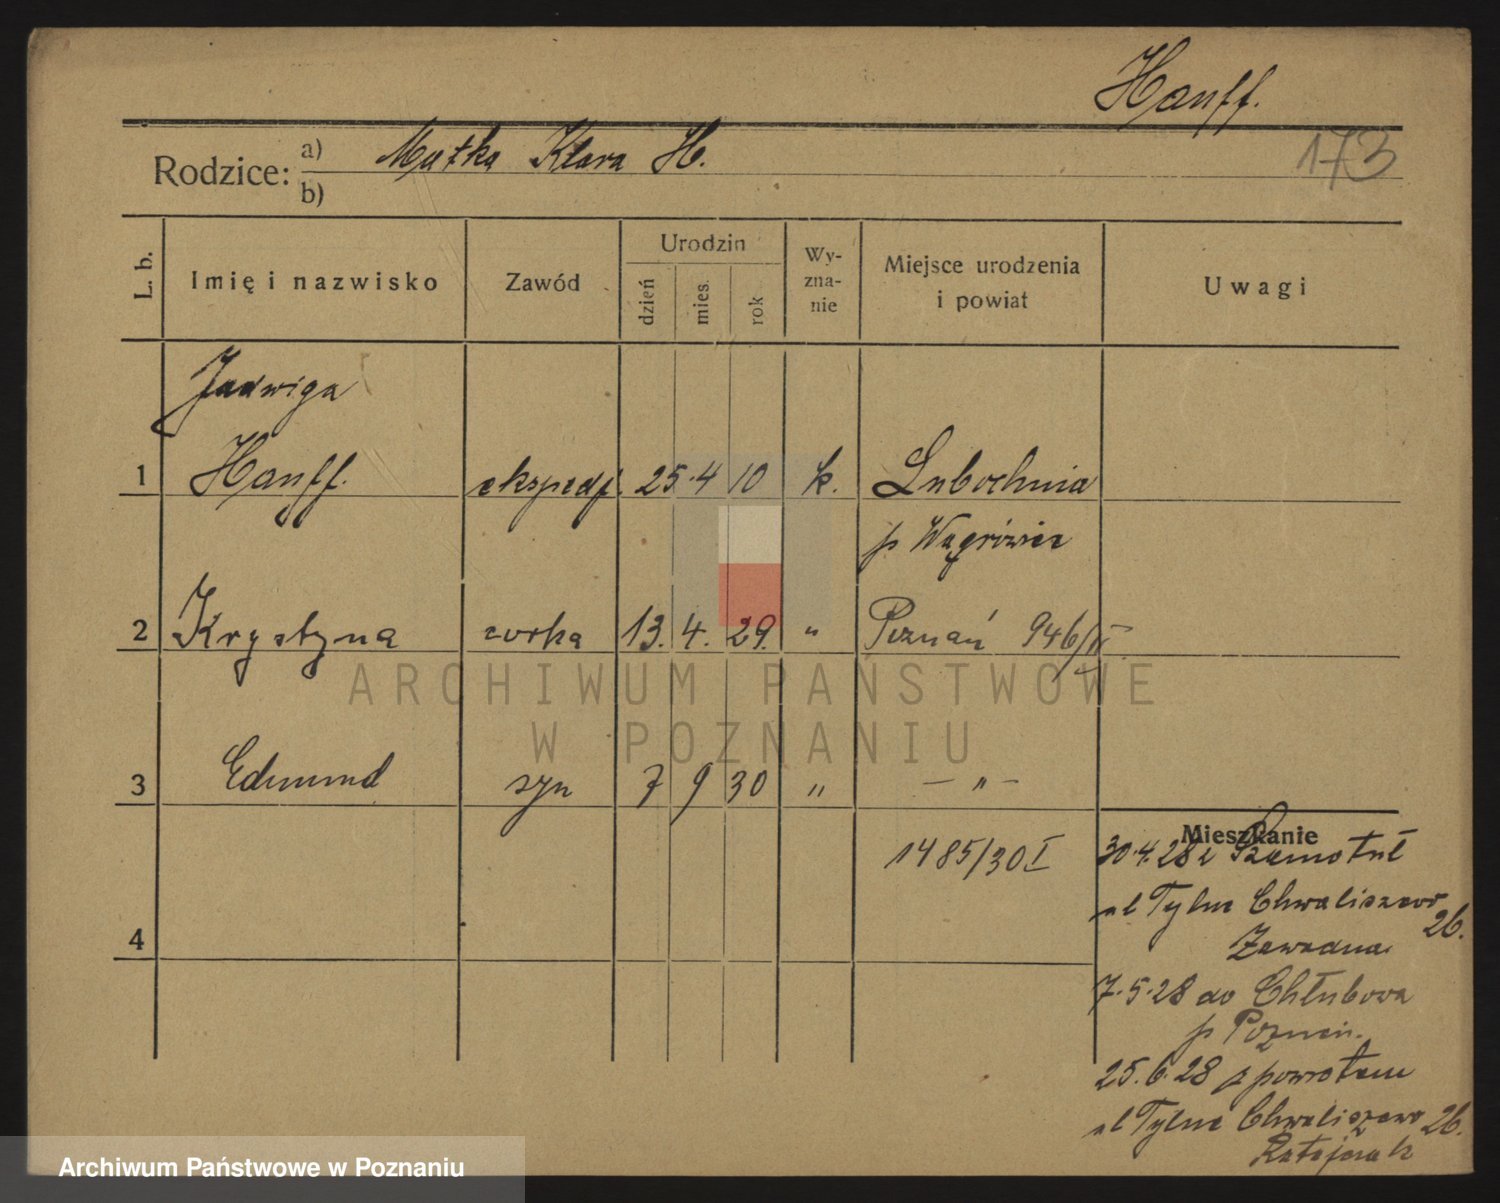 Hanff.
173
Rodzice: a) Matka Klara H.
b)
L. b. Imię i nazwisko Zawód Urodzin dzień mies. rok Wy-zna-nie Miejsce urodzenia i powiat Uwagi
Jadwiga
1 Hanff. ekspedj. 25. 4 10 k. Lubochnia
p Wągrówiec
2 Krystyna corka 13. 4. 29. " Poznań 946/II
ARCHIWUM PAŃSTWOWE
W POZNANIU
3 Edmund syn 7 9 30 " — " —
Mieszkanie
1485/30 I 30.4.28 z Szamotuł
ul Tylne Chwaliszewo 26.
4 Zawadna
7.5.28 do Chłubowa
p Poznań.
25.6.28 z powrotem
ul Tylne Chwaliszewo 26.
Ratajczak
Archiwum Państwowe w Poznaniu